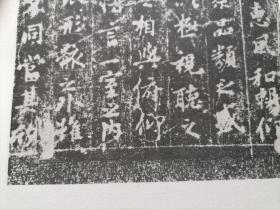 惠風和暢仰
品類之盛
極視聽之
相與俯仰
悟言一室之內
形骸之外雖
同當其欣